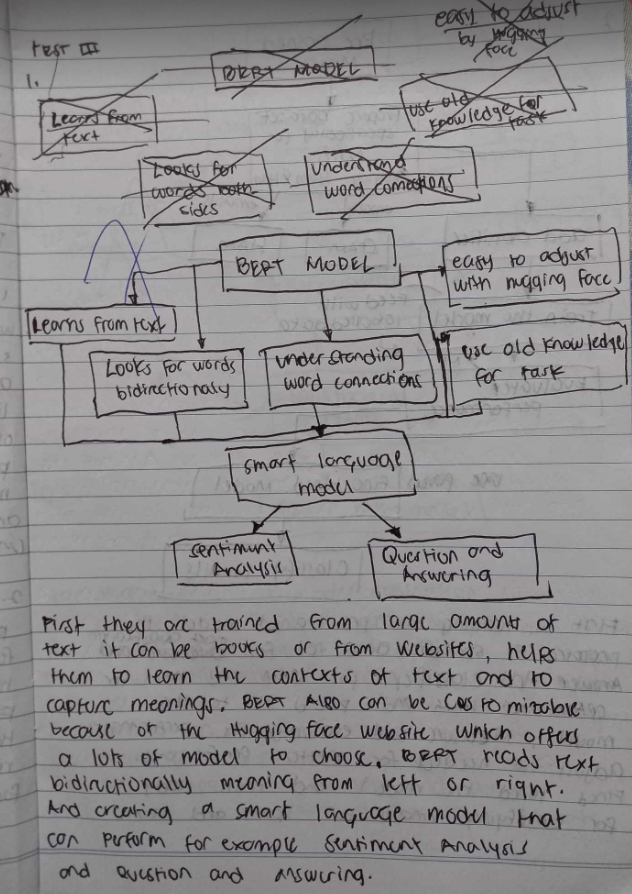 Test III
1.
easy to adjust
by Hugging
face
BERT MODEL
Learns from
text
use old
knowledge for
task
Looks for
words both
sides
understand
word connections
BERT MODEL
easy to adjust
with hugging face
Learns from text
Looks for words
bidirectionaly
understanding
word connections
use old knowledge
for task
smart language
model
Sentiment
Analysis
Question and
Answering
First they are trained from large amounts of
text it can be books or from websites, helps
them to learn the contexts of text and to
capture meanings. BERT ALSO can be Costomizable
because of the Hugging face website which offers
a lots of model to choose. BERT reads text
bidirectionally meaning from left or right.
And creating a smart language model that
can perform for example Sentiment Analysis
and question and answering.